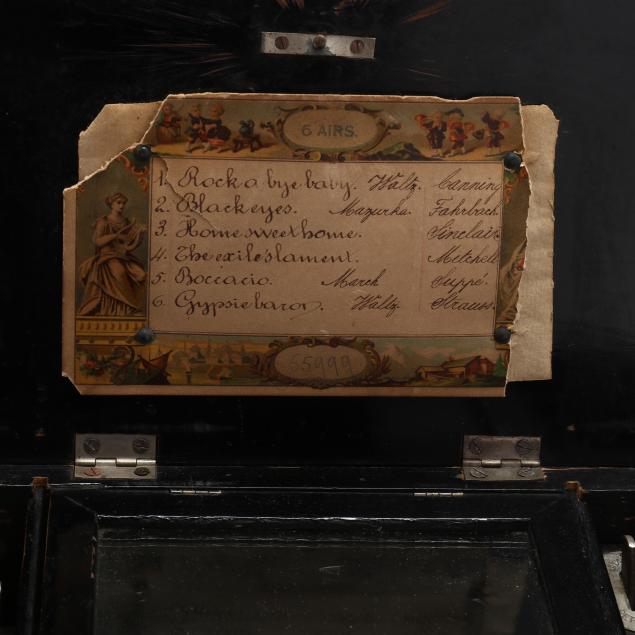 6 AIRS.
1. Rock a bye baby. Waltz. Canning
2. Black eyes. Mazurka. Fahrbach
3. Home sweet home. Sinclair
4. The exile's lament. Mitchell
5. Boccacio. March Suppé.
6. Gypsie baron. Waltz Strauss.